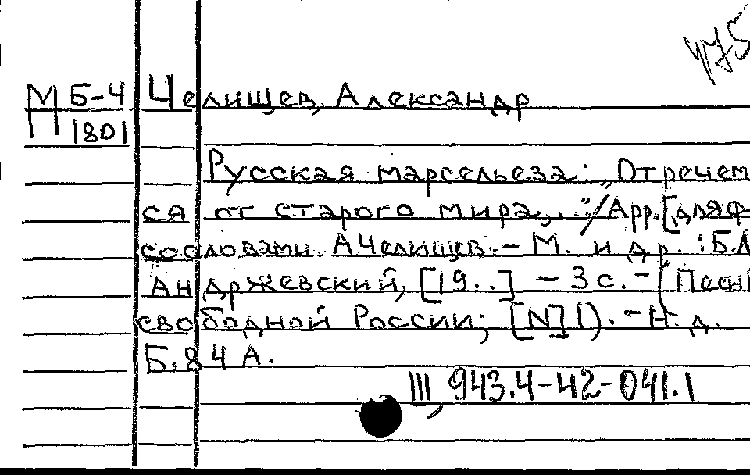 475
М Б-4 Челищев, Александр
П 1801
Русская марсельеза: „Отречем
ся от старого мира,..."/Арр.[для ф
со словами А Челищев. - М. и др. : Б.А
Андржевский, [19..] - 3 с. - (Песни
свободной России; [N] 1). - Н. д.
Б. 84 А.
III, 943.4-42-041.1